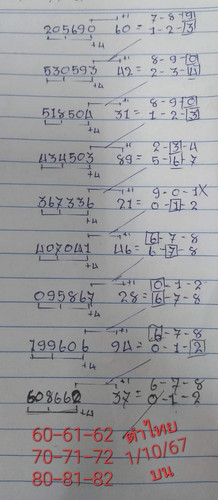 +1 7-8-9
205690 60 = 1-2-3
+4
+1 8-9-0
530593 42 = 2-3-4
+4
+1 8-9-0
518504 31 = 1-2-3
+4
+1 2-3-4
434503 89 = 5-6-7
+4
+1 9-0-1X
367336 21 = 0-1-2
+4
+1 6-7-8
407041 46 = 6-7-8
+4
+1 0-1-2
095867 28 = 6-7-8
+4
+1 6-7-8
799606 94 = 0-1-2
+4
+1 6-7-8
608662 37 = 0-1-2
+4
60-61-62 ตำไทย
70-71-72 1/10/67
80-81-82 บน